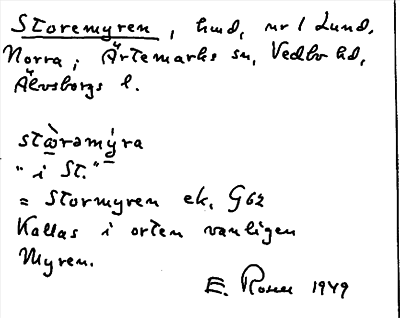 Storemyren, hmd, nr 1 Lund,
Norra, Ärtemarks sn, Vedbo hd,
Älvsborgs l.
stɷ̀rəmýra
" i St."
= Stormyren ek. G62
Kallas i orten vanligen
Myren.
E. Rosen 1949